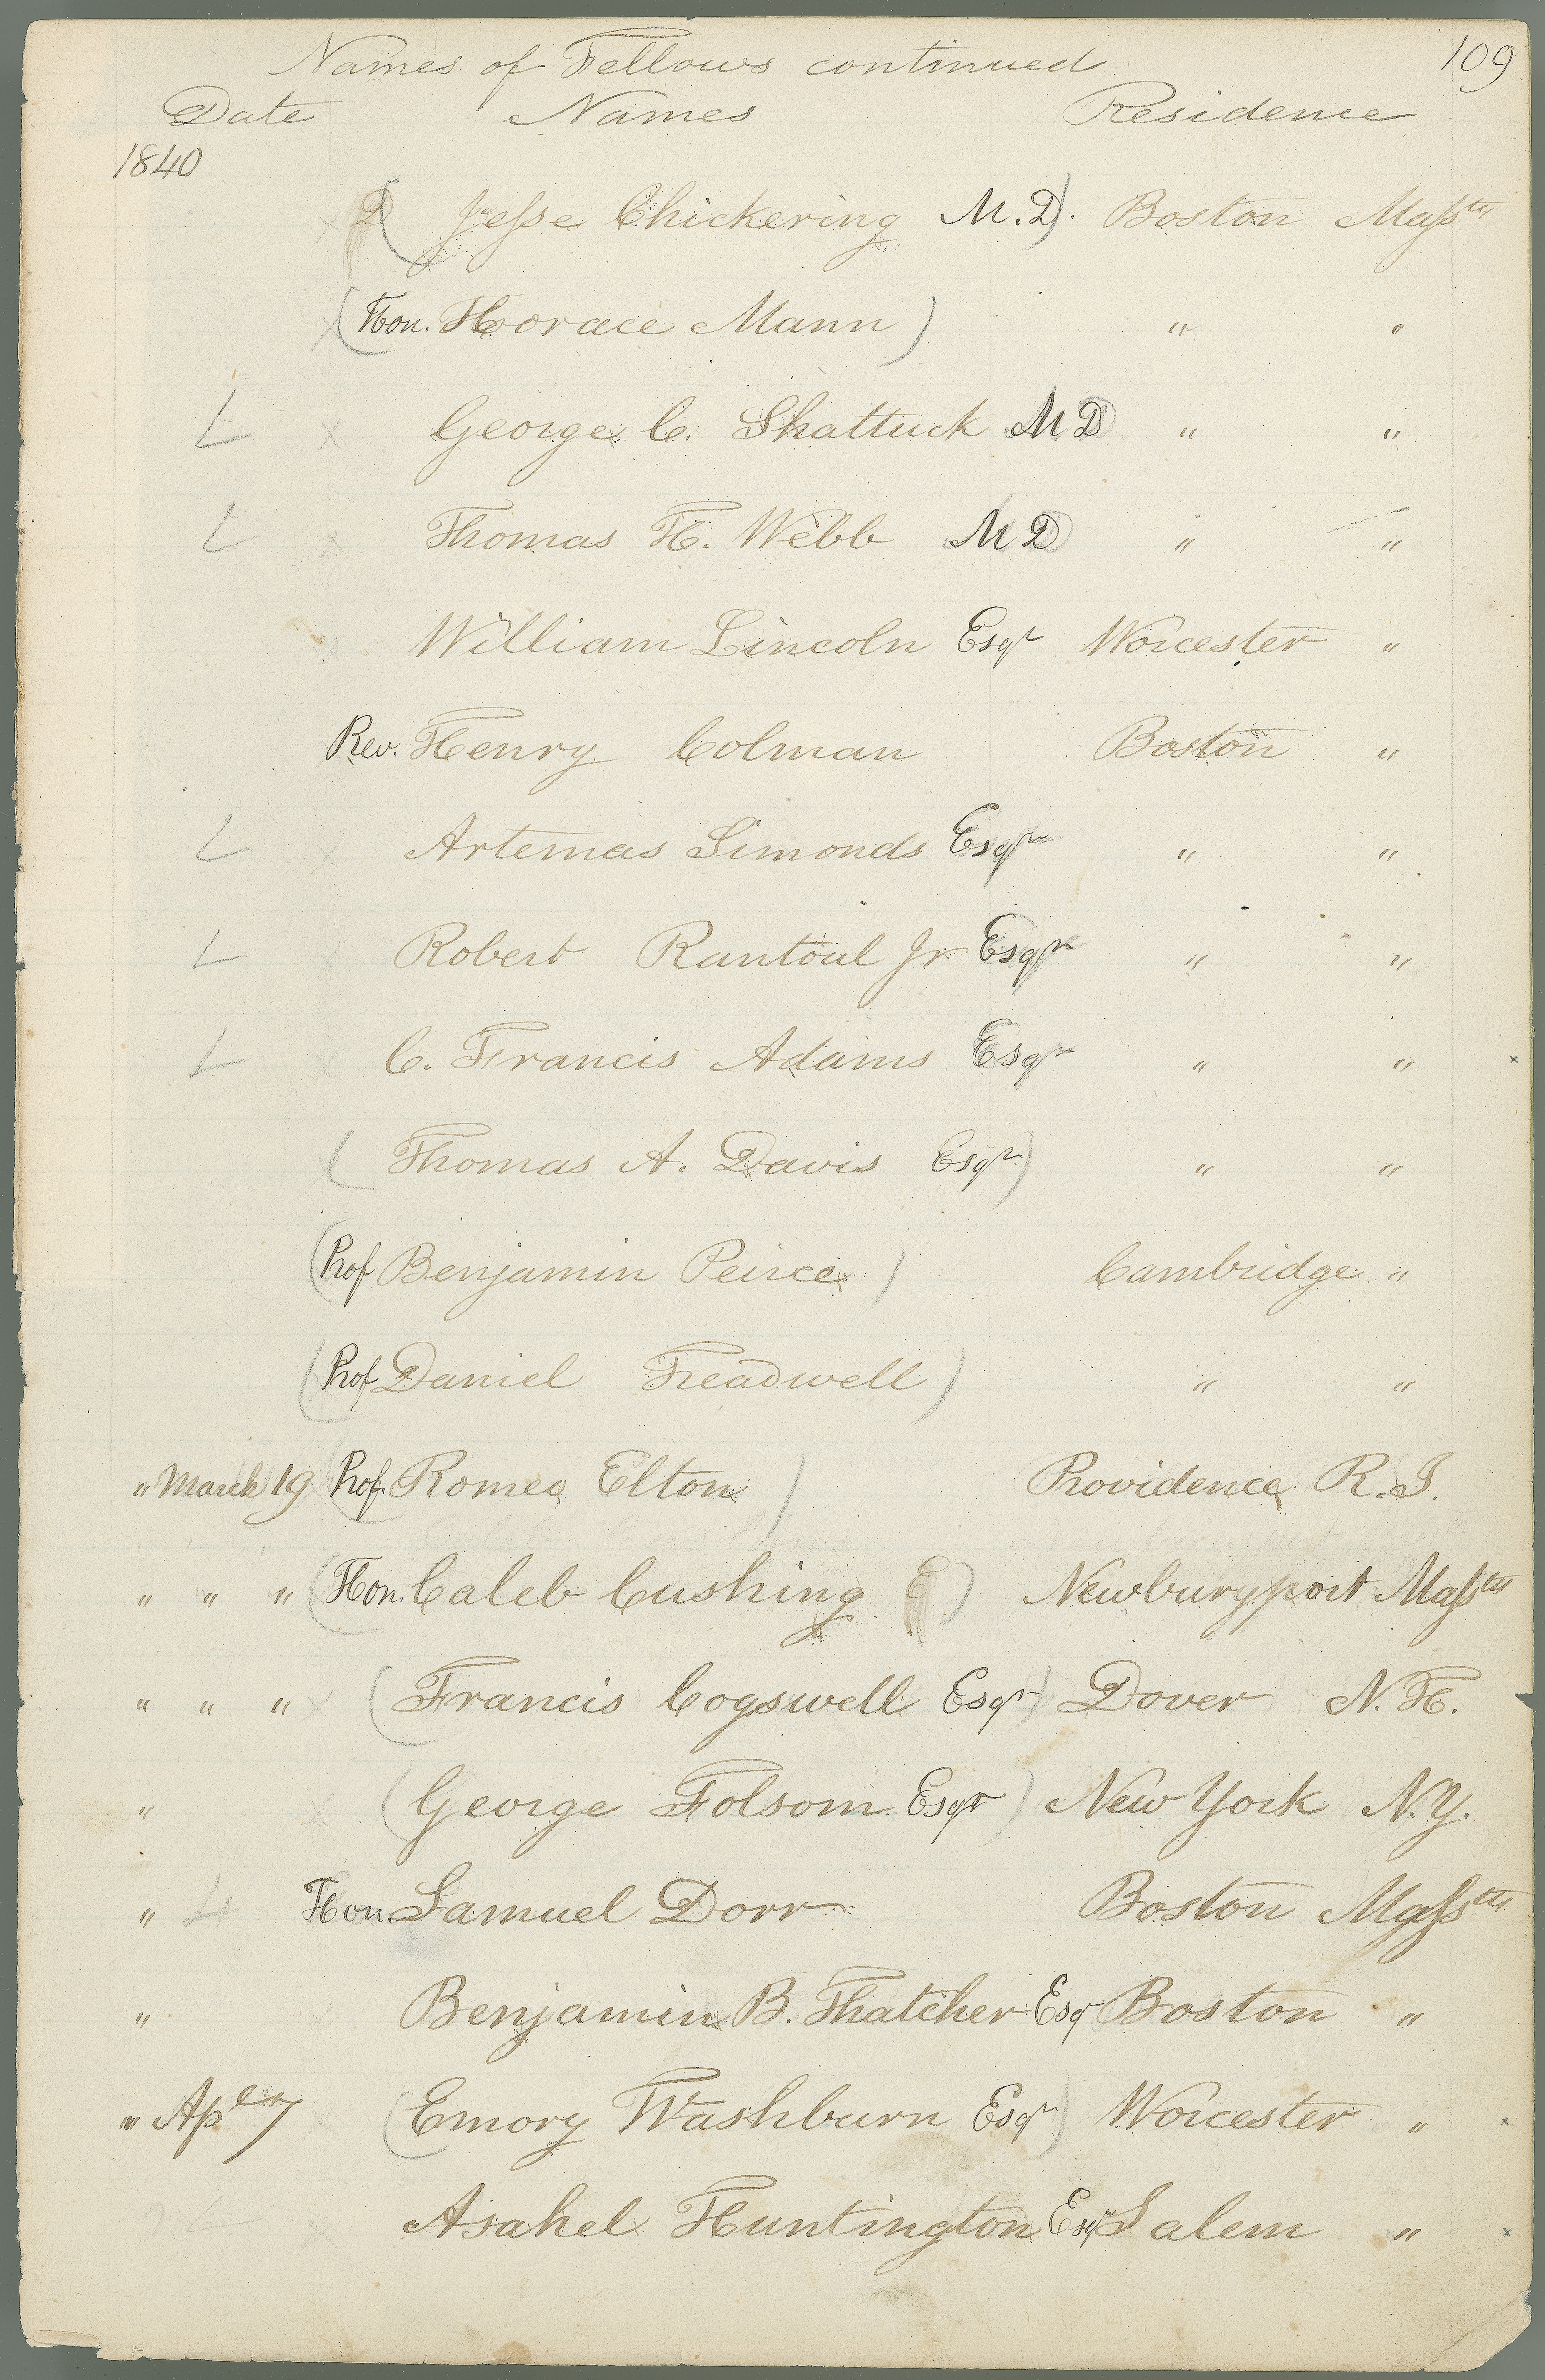 109
Names of Fellows continued
Date Names Residence
1840
(Jesse Chickering M.D). Boston Massts
(Hon. Horace Mann) " "
L x George C. Shattuck MD " "
L x Thomas H. Webb MD " "
William Lincoln Esqr Worcester "
Rev. Henry Colman Boston "
L Artemas Simonds Esqr " "
L Robert Rantoul Jr Esqr " "
L C. Francis Adams Esqr " "
(Thomas A. Davis Esqr) " "
(Prof Benjamin Peirce) Cambridge "
(Prof Daniel Treadwell) " "
" March 19 (Prof. Romeo Elton) Providence R.I.
" " " (Hon. Caleb Cushing) Newburyport Massts
" " " (Francis Cogswell Esqr) Dover N.H.
" (George Folsom Esqr) New York N.Y.
" L Hon. Samuel Dorr Boston Massts
" Benjamin B. Thatcher Esq Boston "
" Apl 7 (Emory Washburn Esqr) Worcester "
L Asahel Huntington Esqr Salem "